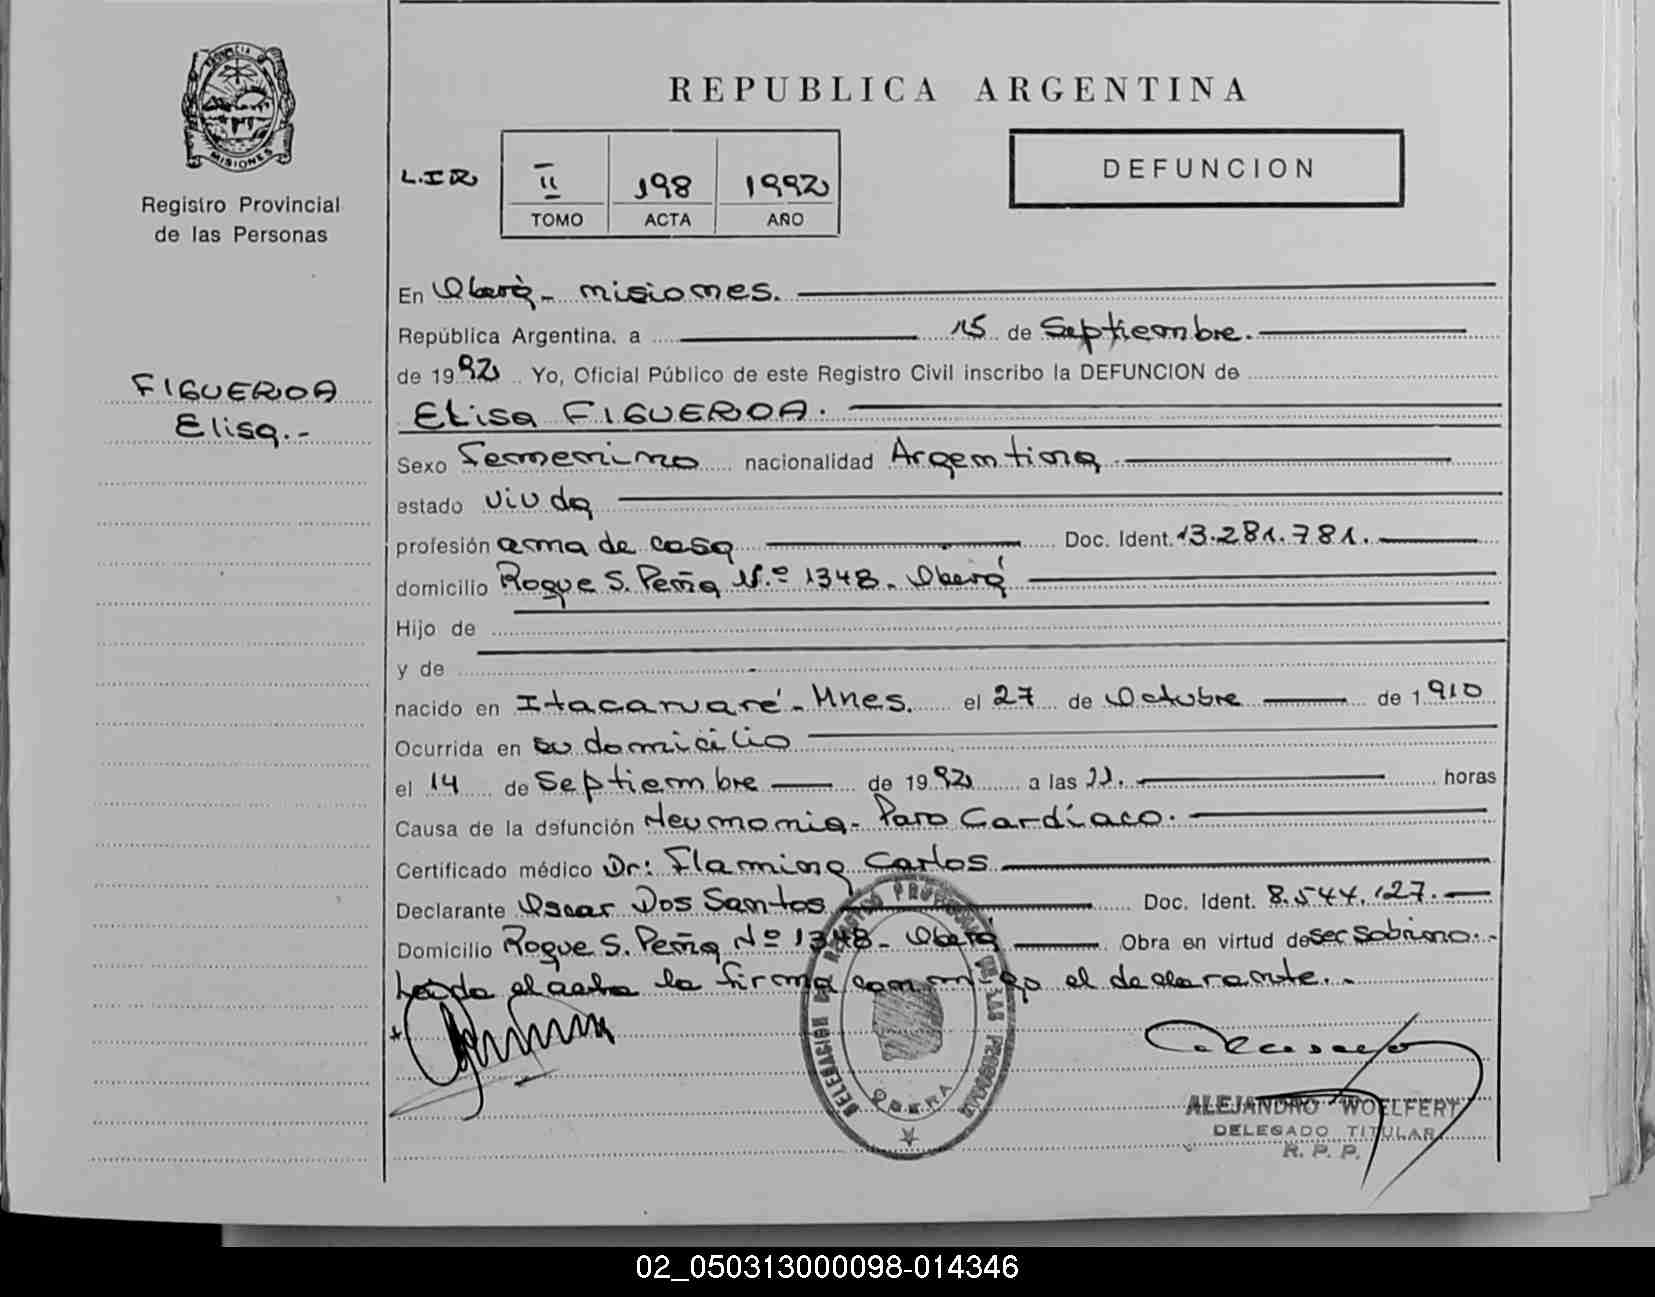 PROVINCIA
MISIONES
Registro Provincial
de las Personas
FIGUEROA
Elisa.-
REPUBLICA ARGENTINA
L.I.R II 198 1992
TOMO ACTA AÑO
DEFUNCION
En Oberá - misiones.
República Argentina, a 15 de Septiembre.
de 1992 Yo, Oficial Público de este Registro Civil inscribo la DEFUNCION de
Elisa FIGUEROA.
Sexo Femenino nacionalidad Argentina
estado viuda
profesión ama de casa Doc. Ident. 13.281.781.
domicilio Roque S. Peña N.º 1348 - Oberá
Hijo de
y de
nacido en Itacaruaré - Mnes. el 27 de Octubre de 1910
Ocurrida en su domicilio
el 14 de Septiembre de 1992 a las horas
Causa de la defunción Neumonia - Paro Cardíaco.
Certificado médico Dr: Flamino Carlos
Declarante Oscar Dos Santos Doc. Ident. 8.544.127.
Domicilio Roque S. Peña Nº 1348 - Oberá Obra en virtud de ser Sobrino.-
Leida el acta la firma conmigo el declarante.-
DELEGACION DEL REGISTRO PROVINCIAL DE LAS PERSONAS
OBERA
ALEJANDRO WOELFERT
DELEGADO TITULAR
R. P. P.
02_050313000098-014346